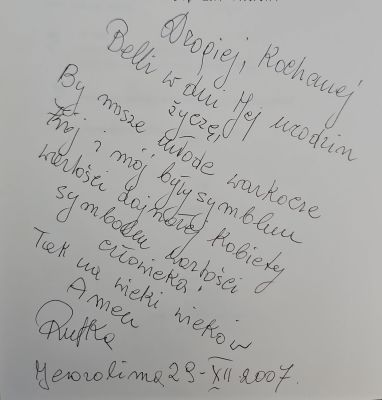 Drogiej, Kochanej
Belli w dni Jej urodzin
życzę,
By nasze młode warkocze
Twój i mój były symbolem
wartości dojrzałej kobiety
symbolem wartości
człowieka!
Tak na wieki wieków
Amen
Rutka
Jerozolima 29-XII-2007.